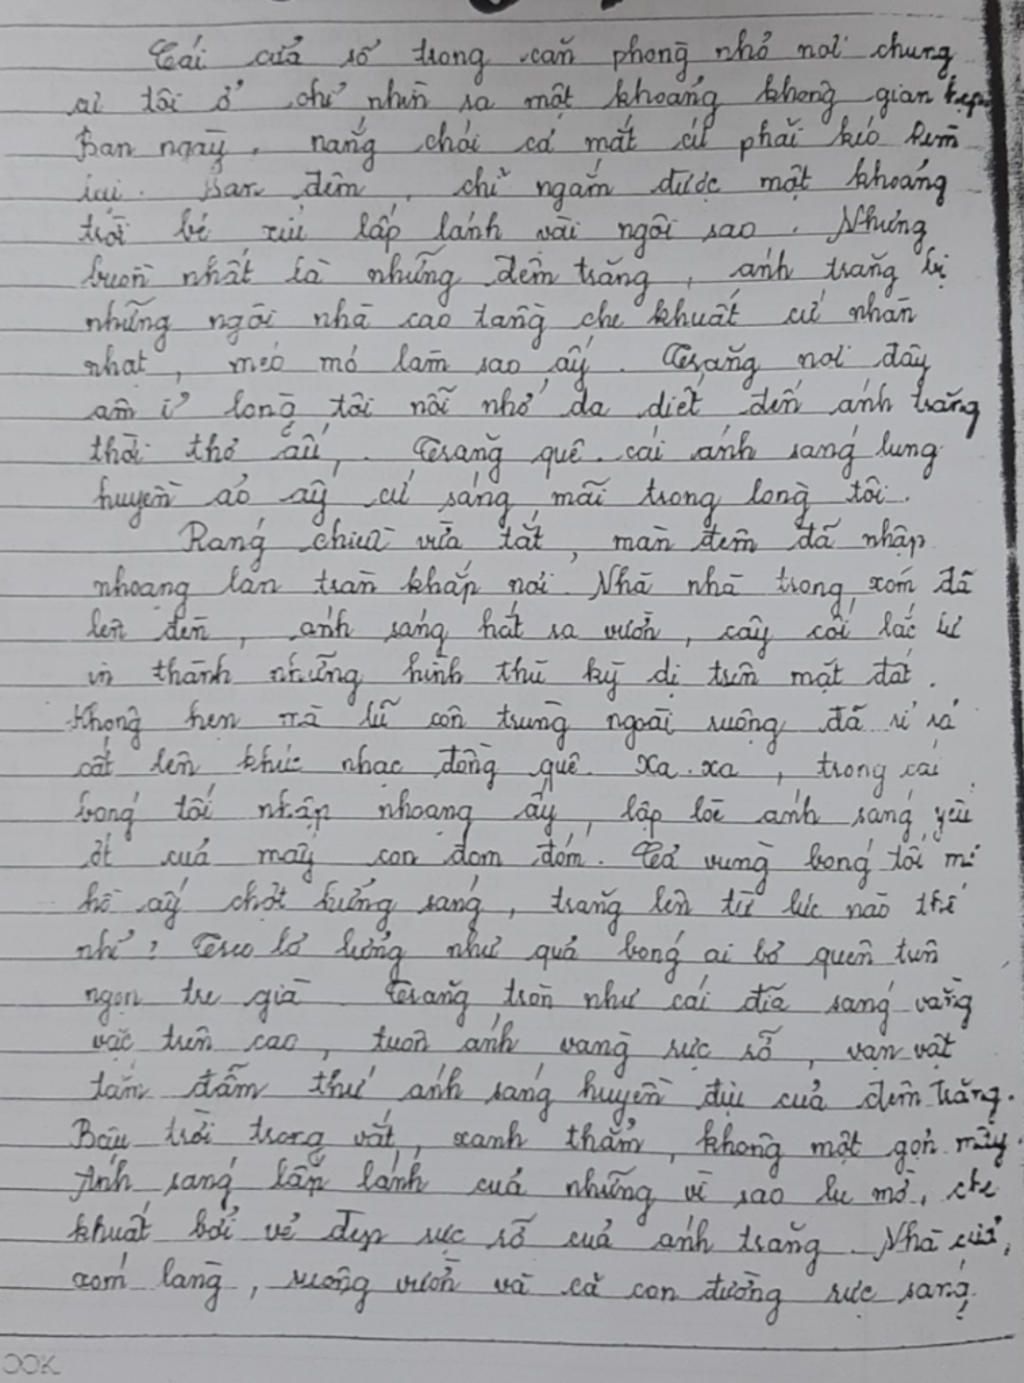 Cái cửa sổ trong căn phòng nhỏ nơi chung
cư tôi ở chỉ nhìn ra một khoảng không gian hẹp.
Ban ngày, nắng chói cả mắt cứ phải kéo rèm
lại. Ban đêm, chỉ ngắm được một khoảng
trời bé xíu lấp lánh vài ngôi sao. Nhưng
buồn nhất là những đêm trăng, ánh trăng bị
những ngôi nhà cao tầng che khuất cứ nhàn
nhạt, méo mó làm sao ấy. Trăng nơi đây
âm ỉ lòng tôi nỗi nhớ da diết đến ánh trăng
thời thơ ấu. Trăng quê cái ánh sáng lung
huyền ảo ấy cứ sáng mãi trong lòng tôi.
Ráng chiều vừa tắt, màn đêm đã nhập
nhoạng lan tràn khắp nơi. Nhà nhà trong xóm đã
lên đèn, ánh sáng hắt ra vườn, cây cối lắc lư
in thành những hình thù kỳ dị trên mặt đất.
Không hẹn mà lũ côn trùng ngoài ruộng đã rỉ rả
cất lên khúc nhạc đồng quê. Xa xa, trong cái
bóng tối nhập nhoạng ấy, lập lòe ánh sáng yếu
ớt của mấy con đom đóm. Cả vùng bóng tối mơ
hồ ấy chợt hửng sáng, trăng lên từ lúc nào thế
nhỉ? Treo lơ lửng như quả bóng ai bỏ quên trên
ngọn tre già. Trăng tròn như cái đĩa sáng vằng
vặc trên cao, tuôn ánh vàng rực rỡ, vạn vật
tắm đẫm thứ ánh sáng huyền dịu của đêm trăng.
Bầu trời trong vắt, xanh thẳm, không một gợn mây.
Ánh sáng lấp lánh của những vì sao lu mờ, che
khuất bởi vẻ đẹp rực rỡ của ánh trăng. Nhà cửa,
xóm làng, ruộng vườn và cả con đường rực sáng.
OOK